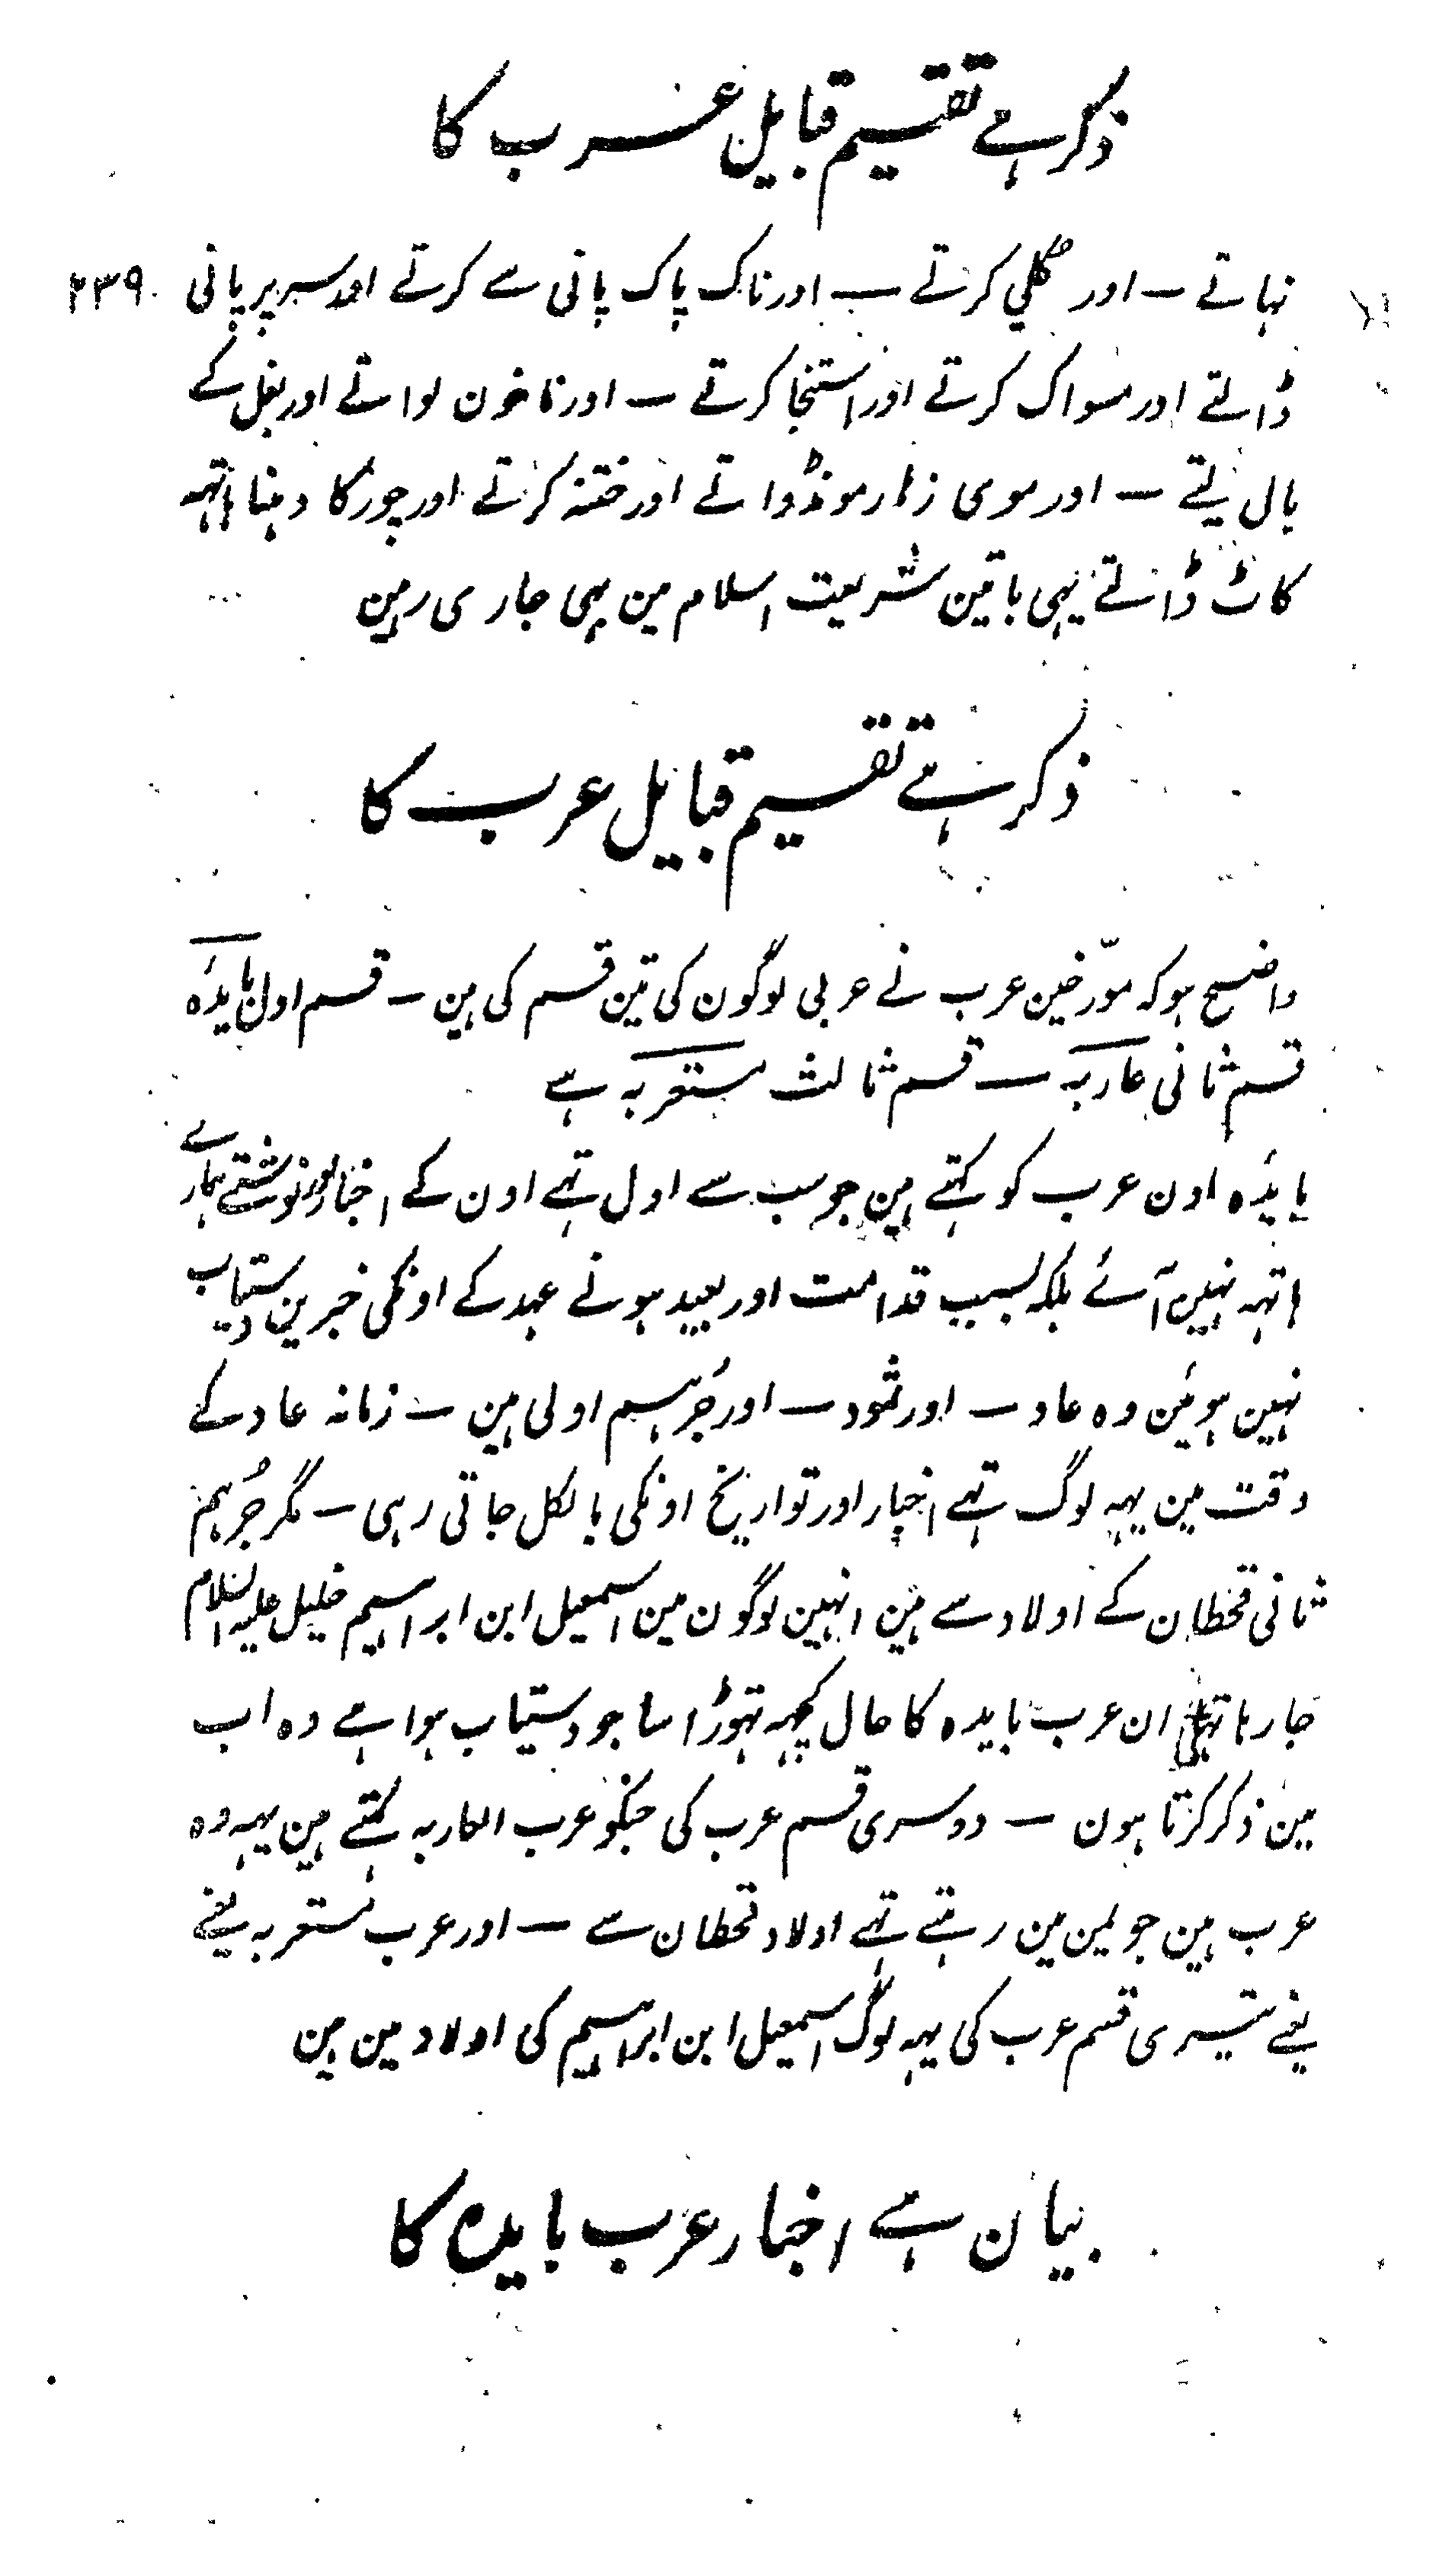 ذکر ہے تقسیم قبایل عرب کا
نہاتے ۔ اور کلی کرتے ۔ اور ناک پاک پانی سے کرتے اور سر پر پانی ۲۳۹
ڈالتے اور مسواک کرتے اور استنجا کرتے ۔ اور ناخون لواتے اور بغل کے
بال لیتے ۔ اور موی زہار مونڈواتے اور ختنہ کرتے اور چور کا دہنا ہاتہہ
کاٹ ڈالتے یہی باتین شریعت اسلام مین بہی جاری رہین
ذکر ہے تقسیم قبایل عرب کا
واضح ہو کہ مؤرخین عرب نے عربی لوگون کی تین قسم کی ہین ۔ قسم اول بایدہ
قسم ثانی عاربہ ۔ قسم ثالث مستعربہ ہے
بایدہ اون عرب کو کہتے ہین جو سب سے اول تہے اون کے اخبار اور نوشتے ہمارے
ہاتہہ نہین آئے بلکہ بسبب قدامت اور بعید ہونے عہد کے اونکی خبرین دستیاب
نہین ہوئین وہ عاد ۔ اور ثمود ۔ اور جُرہم اولی ہین ۔ زمانہ عاد کے
وقت مین یہہ لوگ تہے اخبار اور تواریخ اونکی بالکل جاتی رہی ۔ مگر جُرہم
ثانی قحطان کے اولاد سے ہین انہین لوگون مین اسمعیل ابن ابراہیم خلیل علیہ السلام
جا رہا تہا ان عرب بایدہ کا حال کچہہ تہوڑا سا جو دستیاب ہوا ہے وہ اب
مین ذکر کرتا ہون ۔ دوسری قسم عرب کی جنکو عرب العاربہ کہتے ہین یہہ وہ
عرب ہین جو یمن مین رہتے تہے اولاد قحطان سے ۔ اور عرب مستعربہ یعنے
یعنے تیسری قسم عرب کی یہہ لوگ اسمعیل ابن ابراہیم کی اولاد مین ہین
بیان ہے اخبار عرب بایدہ کا